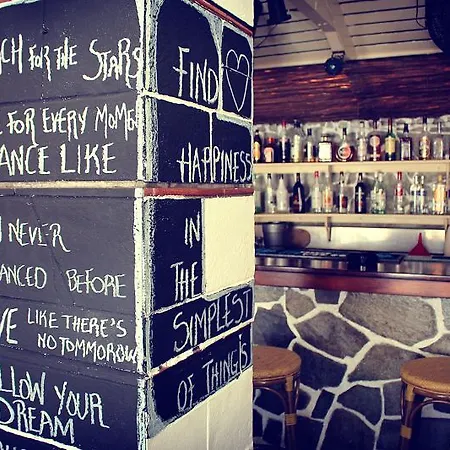 CH FOR THE STARS
FOR EVERY MOME
ANCE LIKE
NEVER
ANCED BEFORE
VE LIKE THERE'S
NO TOMMOROW
LLOW YOUR
DREAM
FIND
HAPPINESS
IN
THE
SIMPLEST
OF THINGS